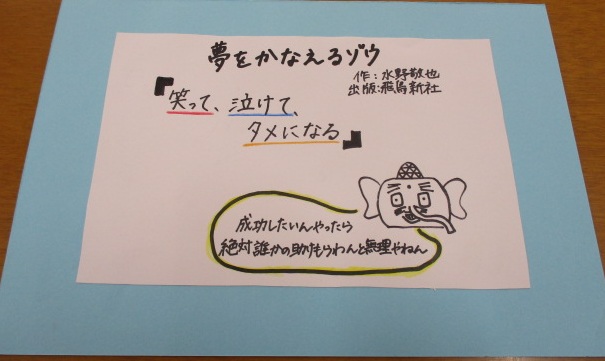 夢をかなえるゾウ
作:水野敬也
出版:飛鳥新社
『笑って、泣けて、
タメになる』
成功したいんやったら
絶対誰かの助けもらわんと無理やねん